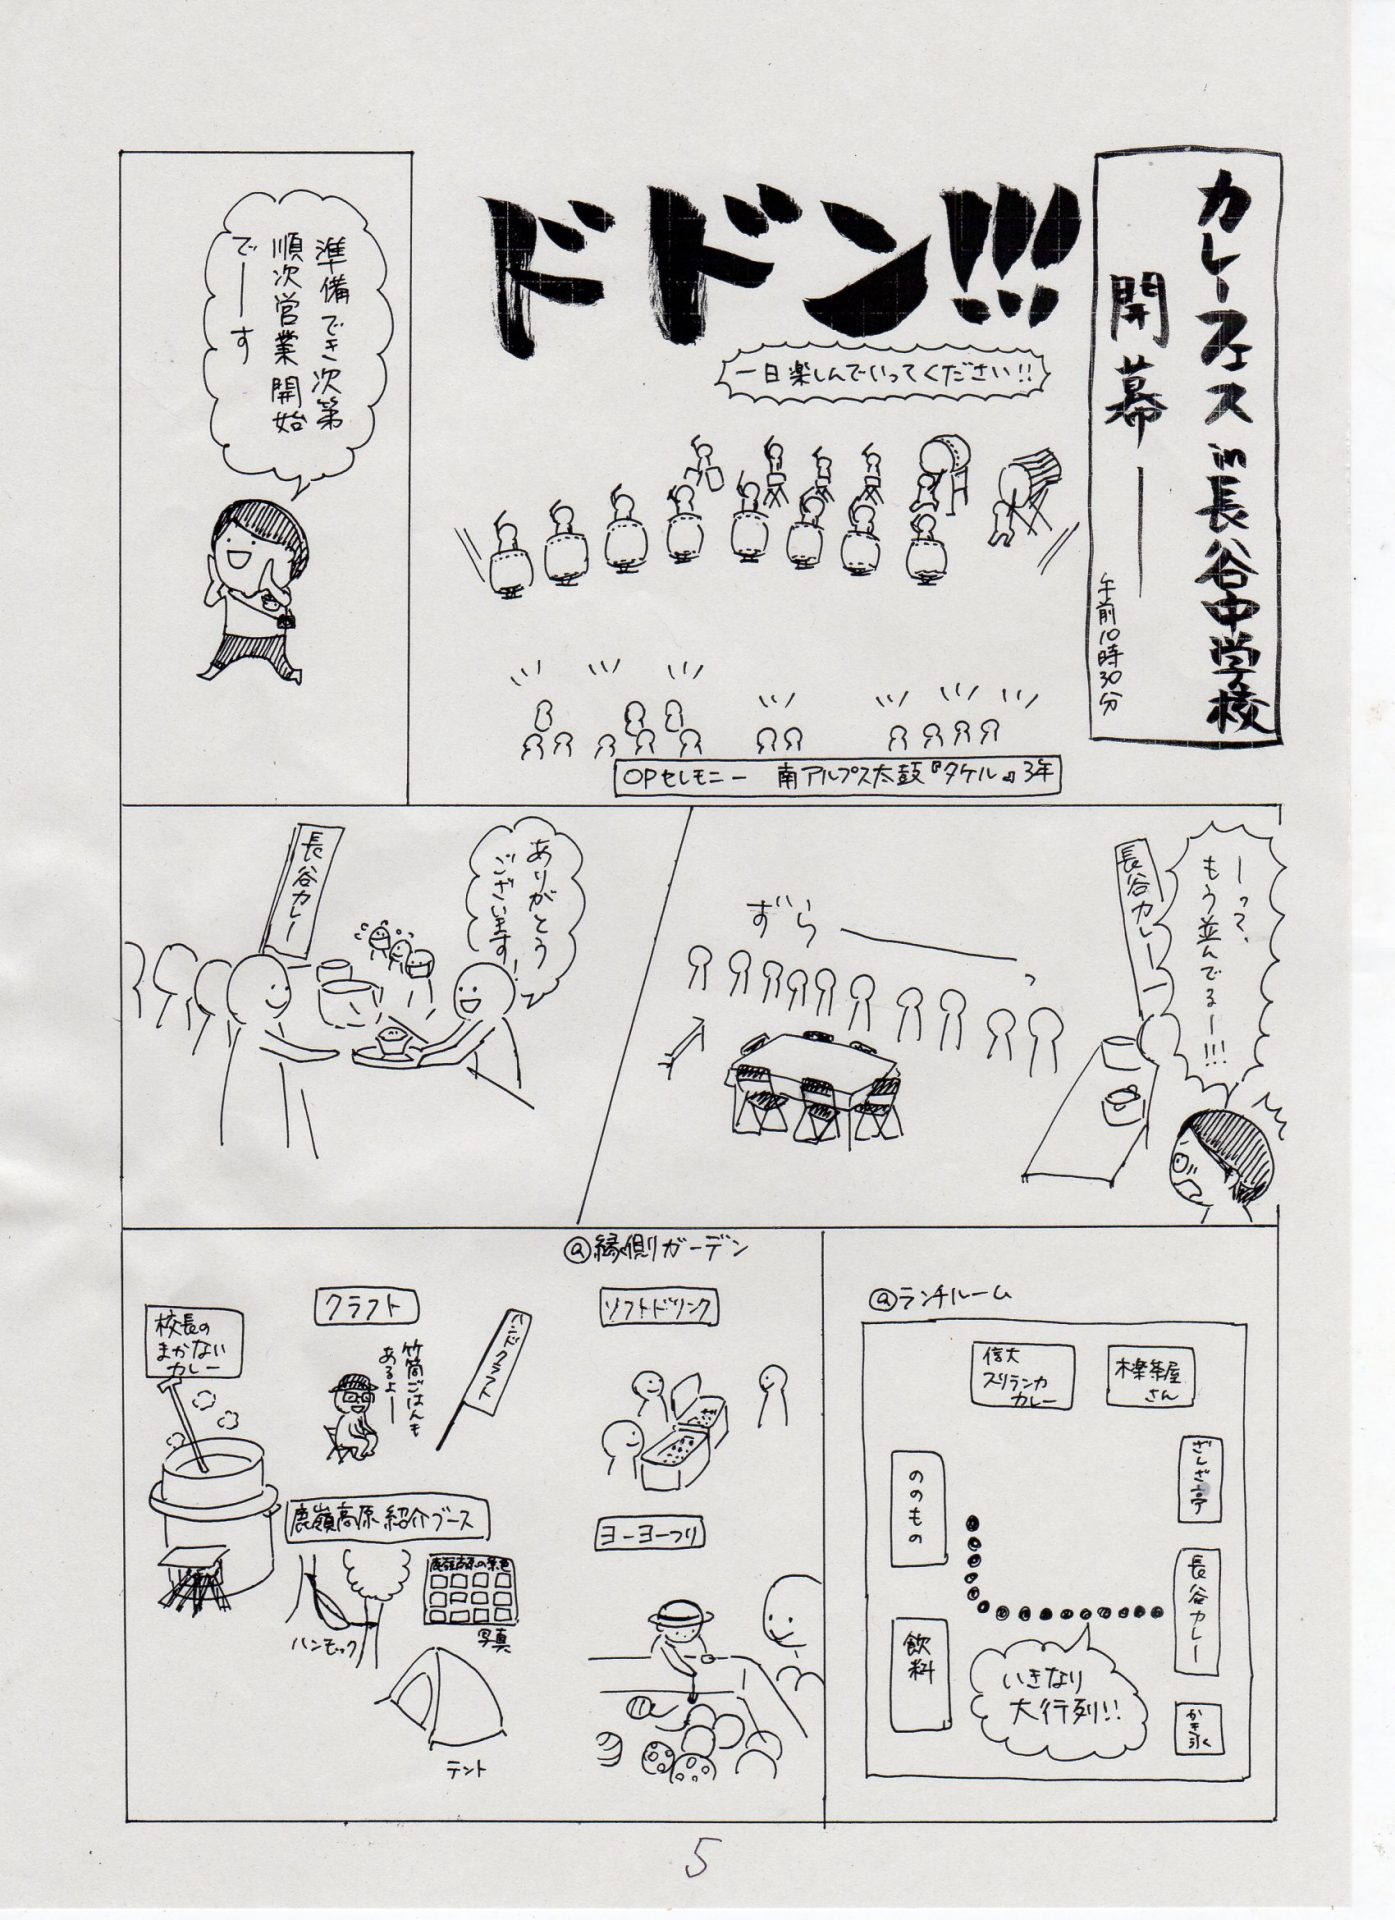 カレーフェス in 長谷中学校
開幕――
午前10時30分
ドドン!!!
一日楽しんでいってください!!
OPセレモニー 南アルプス太鼓『タケル』3年
準備でき次第
順次営業開始
でーーす
ーって、
もう並んでるー!!!
長谷カレー
ずらーーーっ
長谷カレー
ありがとう
ございます!
@ランチルーム
信大
スリランカ
カレー
木楽茶屋
さん
ざんざ亭
長谷カレー
かき氷
ののもの
飲料
いきなり
大行列!!
@縁側ガーデン
ソフトドリンク
ハンドクラフト
クラフト
竹筒ごはんも
あるよーー
校長の
まかない
カレー
鹿嶺高原紹介ブース
鹿嶺高原の景色
写真
ハンモック
テント
ヨーヨーつり
5